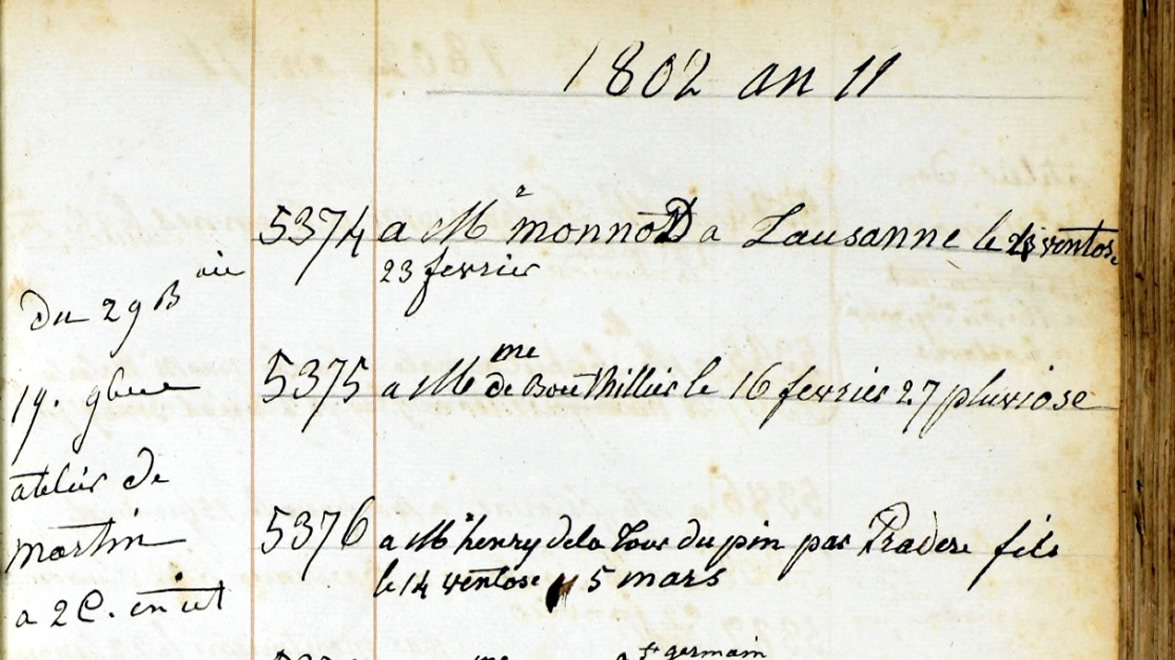 1802 an 11
5374 a Mr monnoD a Lausanne le ventose
23 fevrier
Du 29 B aire
5375 a Mme de Bouthillier le 16 fevrier 27 pluviose
19. 9bre
atelier de
martin
5376 a Mr henry de la Tour du pin par Pradere fils
le 14 ventose 5 mars
a 2 C. en
st germain